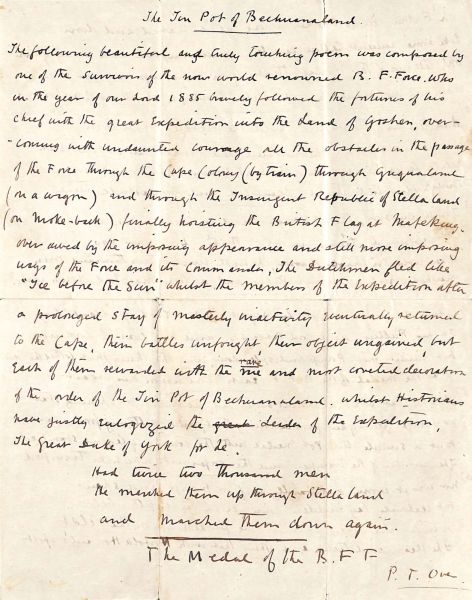 The Tin Pot of Bechuanaland.
The following beautiful and truly touching poem was composed by
one of the Survivors of the now world renowned B. F. Force, who
in the year of our Lord 1885 bravely followed the fortunes of his
chief with the great Expedition into the Land of Goshen, over-
coming with undaunted courage all the obstacles in the passage
of the Force through the Cape Colony (by train) through Griqualand
(on a wagon) and through the Insurgent Republic of Stellaland
(on Moke-back) finally hoisting the British Flag at Mafeking.
over awed by the imposing appearance and still more imposing
ways of the Force and its Commander, The Dutchmen fled like
"Ice before the Sun" whilst the members of the Expedition after
a prolonged stay of masterly inactivity eventually returned
to the Cape, their battles unfought, their object ungained, but
each of them rewarded with the rare and most coveted decoration
of the order of the Tin Pot of Bechuanaland. whilst Historians
have justly eulogized the great Leader of the Expedition,
The Great Duke of York for he.
Had twice two thousand men
He marched them up through Stellaland
and marched them down again.
The Medal of the B F F
P. T. Ove.